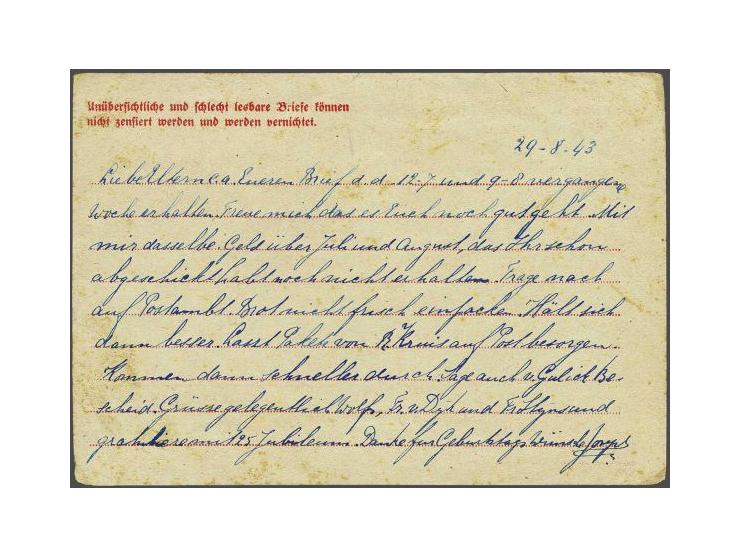 Unübersichtliche und schlecht lesbare Briefe können
nicht zensiert werden und werden vernichtet.
29-8-43
Liebe Eltern c.a. Eueren Brief d.d. 12-7 und 9-8 vergangene
woche erhalten. Freue mich das es Euch noch gut geht. Mit
mir dasselbe. Geld über Juli und August, das Ihr schon
abgeschickt habt noch nicht erhalten. Frage nach
auf Postambt. Brot nicht frisch einpacken. Hält sich
dann besser. Lasst Pakete von R. Kruis auf Post besorgen.
Kommen dann schneller durch. Sage auch v. Gulick Be-
scheid. Grüsse gelegentlich Wolfs, Fr. v. Dijk und Fr. und
mit 25 Jubileum. Danke für Geburtstagswünsche